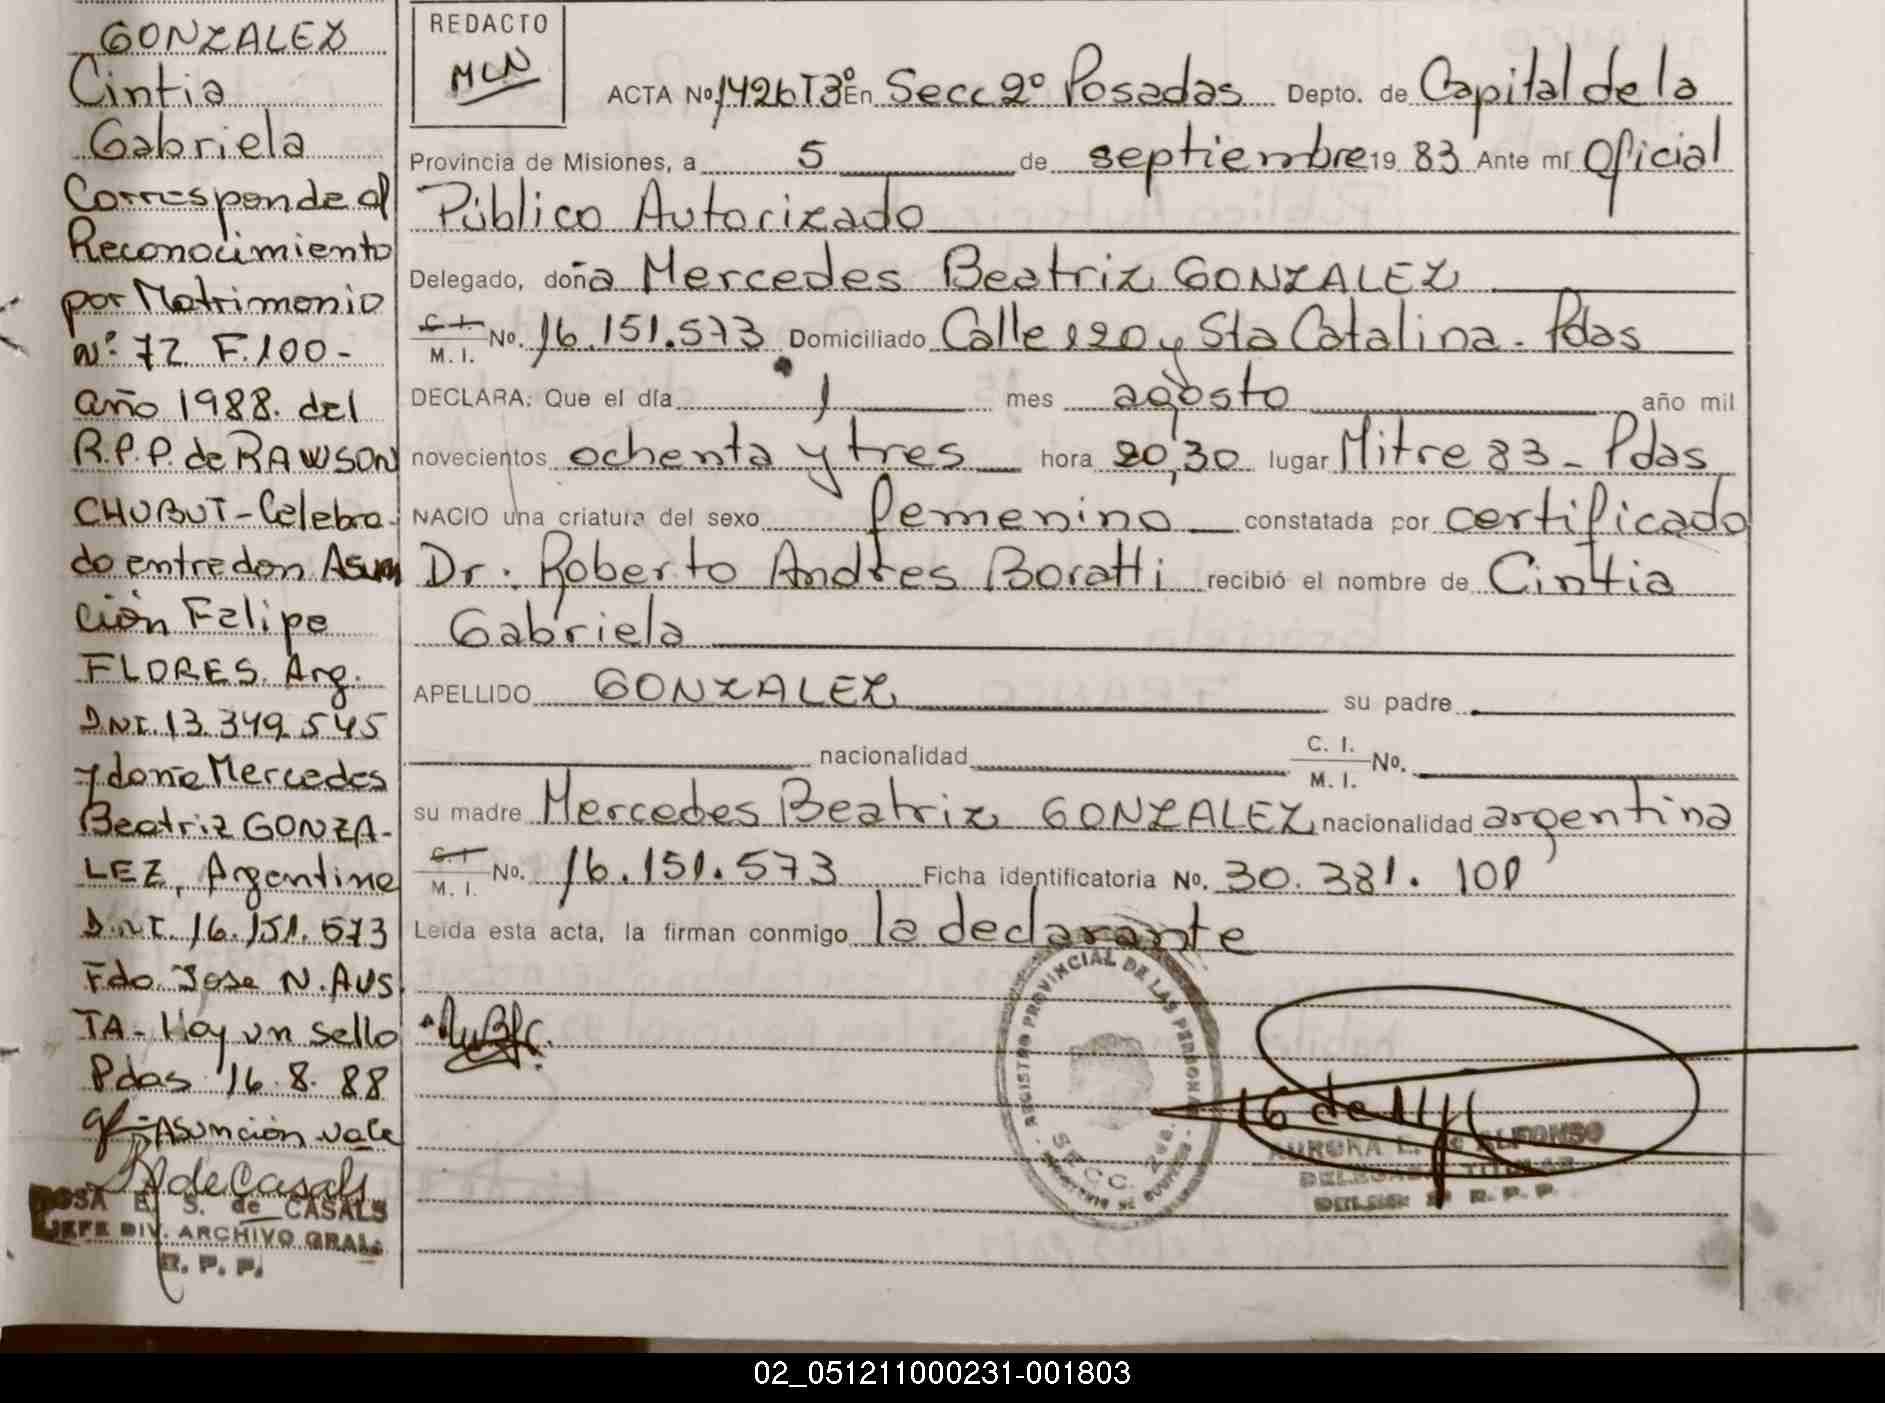 GONZALEZ
Cintia
Gabriela
Corresponde al
Reconocimiento
por Matrimonio
Nº 72 F.100-
año 1988. del
R.P.P. de RAWSON
CHUBUT - Celebra-
do entre don Asun
ción Felipe
FLORES. Arg.
D.N.I. 13.349.545
y doña Mercedes
Beatriz GONZA-
LEZ, Argentina
D.N.I. 16.151.573
Fdo Jose N. AUS
TA - Hay un sello
Pdas 16.8.88
Asunción vale
ROSA E. S. de CASALS
JEFE DIV. ARCHIVO GRAL.
R. P. P.
REDACTO
MLN
ACTA Nº 1426T3º En Secc 2º Posadas Depto. de Capital de la
Provincia de Misiones, a 5 de septiembre 19 83 Ante mí Oficial
Público Autorizado
Delegado, doña Mercedes Beatriz GONZALEZ
C. I.
M. I. No. 16.151.573 Domiciliado Calle 120 y Sta Catalina. Pdas
DECLARA: Que el día 1 mes agosto año mil
novecientos ochenta y tres hora 20,30 lugar Mitre 83 - Pdas
NACIO una criatura del sexo femenino constatada por certificado
Dr. Roberto Andres Boratti recibió el nombre de Cintia
Gabriela
APELLIDO GONZALEZ su padre
nacionalidad C. I.
M. I. No.
su madre Mercedes Beatriz GONZALEZ nacionalidad argentina
C. I.
M. I. No. 16.151.573 Ficha identificatoria No. 30.381.101
Leída esta acta, la firman conmigo la declarante
REGISTRO PROVINCIAL DE LAS PERSONAS
SECC. 2da.
AURORA E. de ALFONSO
DELEGADA TITULAR
R. P. P.
02_051211000231-001803